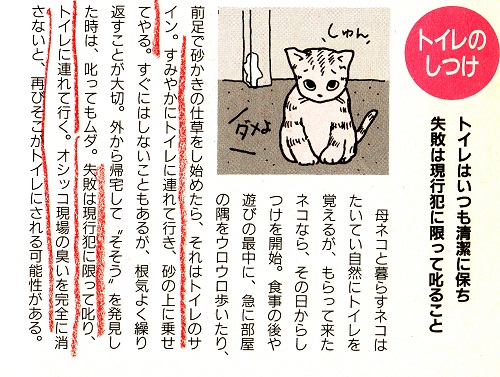 トイレの
しつけ
トイレはいつも清潔に保ち
失敗は現行犯に限って叱ること
しゅん
ダメよ
母ネコと暮らすネコは
たいてい自然にトイレを
覚えるが、もらって来た
ネコなら、その日からし
つけを開始。食事の後や
遊びの最中に、急に部屋
の隅をウロウロ歩いたり、
前足で砂かきの仕草をし始めたら、それはトイレのサ
イン。すみやかにトイレに連れて行き、砂の上に乗せ
てやる。すぐにはしないこともあるが、根気よく繰り
返すことが大切。外から帰宅して〝そそう〟を発見し
た時は、叱ってもムダ。失敗は現行犯に限って叱り、
トイレに連れて行く。オシッコ現場の臭いを完全に消
さないと、再びそこがトイレにされる可能性がある。